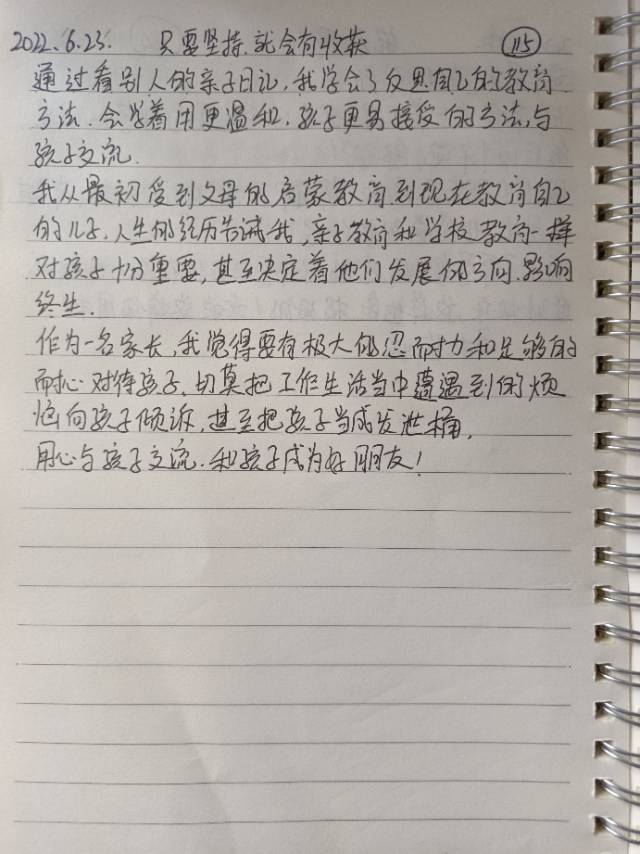 2022.6.23. 只要坚持,就会有收获 115
通过看别人的亲子日记,我学会了反思自己的教育
方法.会学着用更温和.孩子更易接受的方法,与
孩子交流.
我从最初受到父母的启蒙教育到现在教育自己
的儿子,人生的经历告诫我,亲子教育和学校教育一样
对孩子十分重要,甚至决定着他们发展的方向.影响
终生.
作为一名家长,我觉得要有极大的忍耐力和足够的
耐心对待孩子.切莫把工作生活当中遭遇到的烦
恼向孩子倾诉,甚至把孩子当成发泄桶,
用心与孩子交流.和孩子成为好朋友!